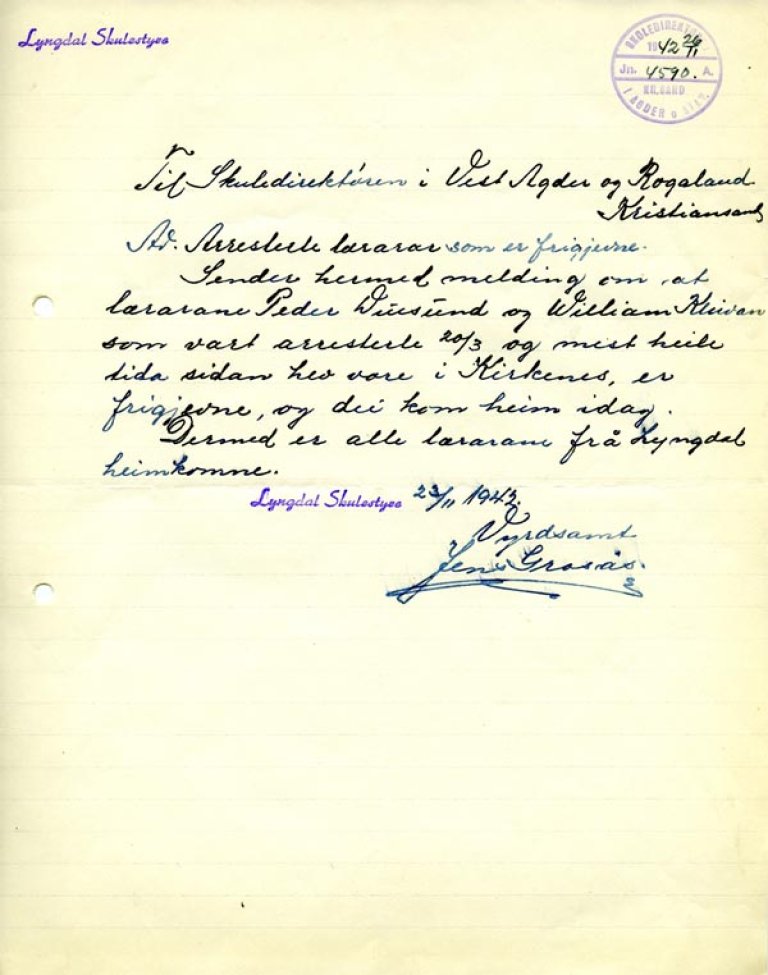 Lyngdal Skulestyre
SKOLEDIREKTØR
1942 26/11
Jn. 4590. A.
KR.SAND
I AGDER O
Til Skuledirektören i Vest Agder og Rogaland
Kristiansand
Ad. Arresterte lærarar som er frigjevne.
Sender hermed melding om at
lærarane Peder og William Kleivan
som vart arresterte 20/3 og mest heile
tida sidan hev vore i Kirkenes, er
frigjevne, og dei kom heim idag.
Dermed er alle lærarane frå Lyngdal
heimkomne.
Lyngdal Skulestyre 23/11 1942.
Vyrdsamt
Jens Grosås.